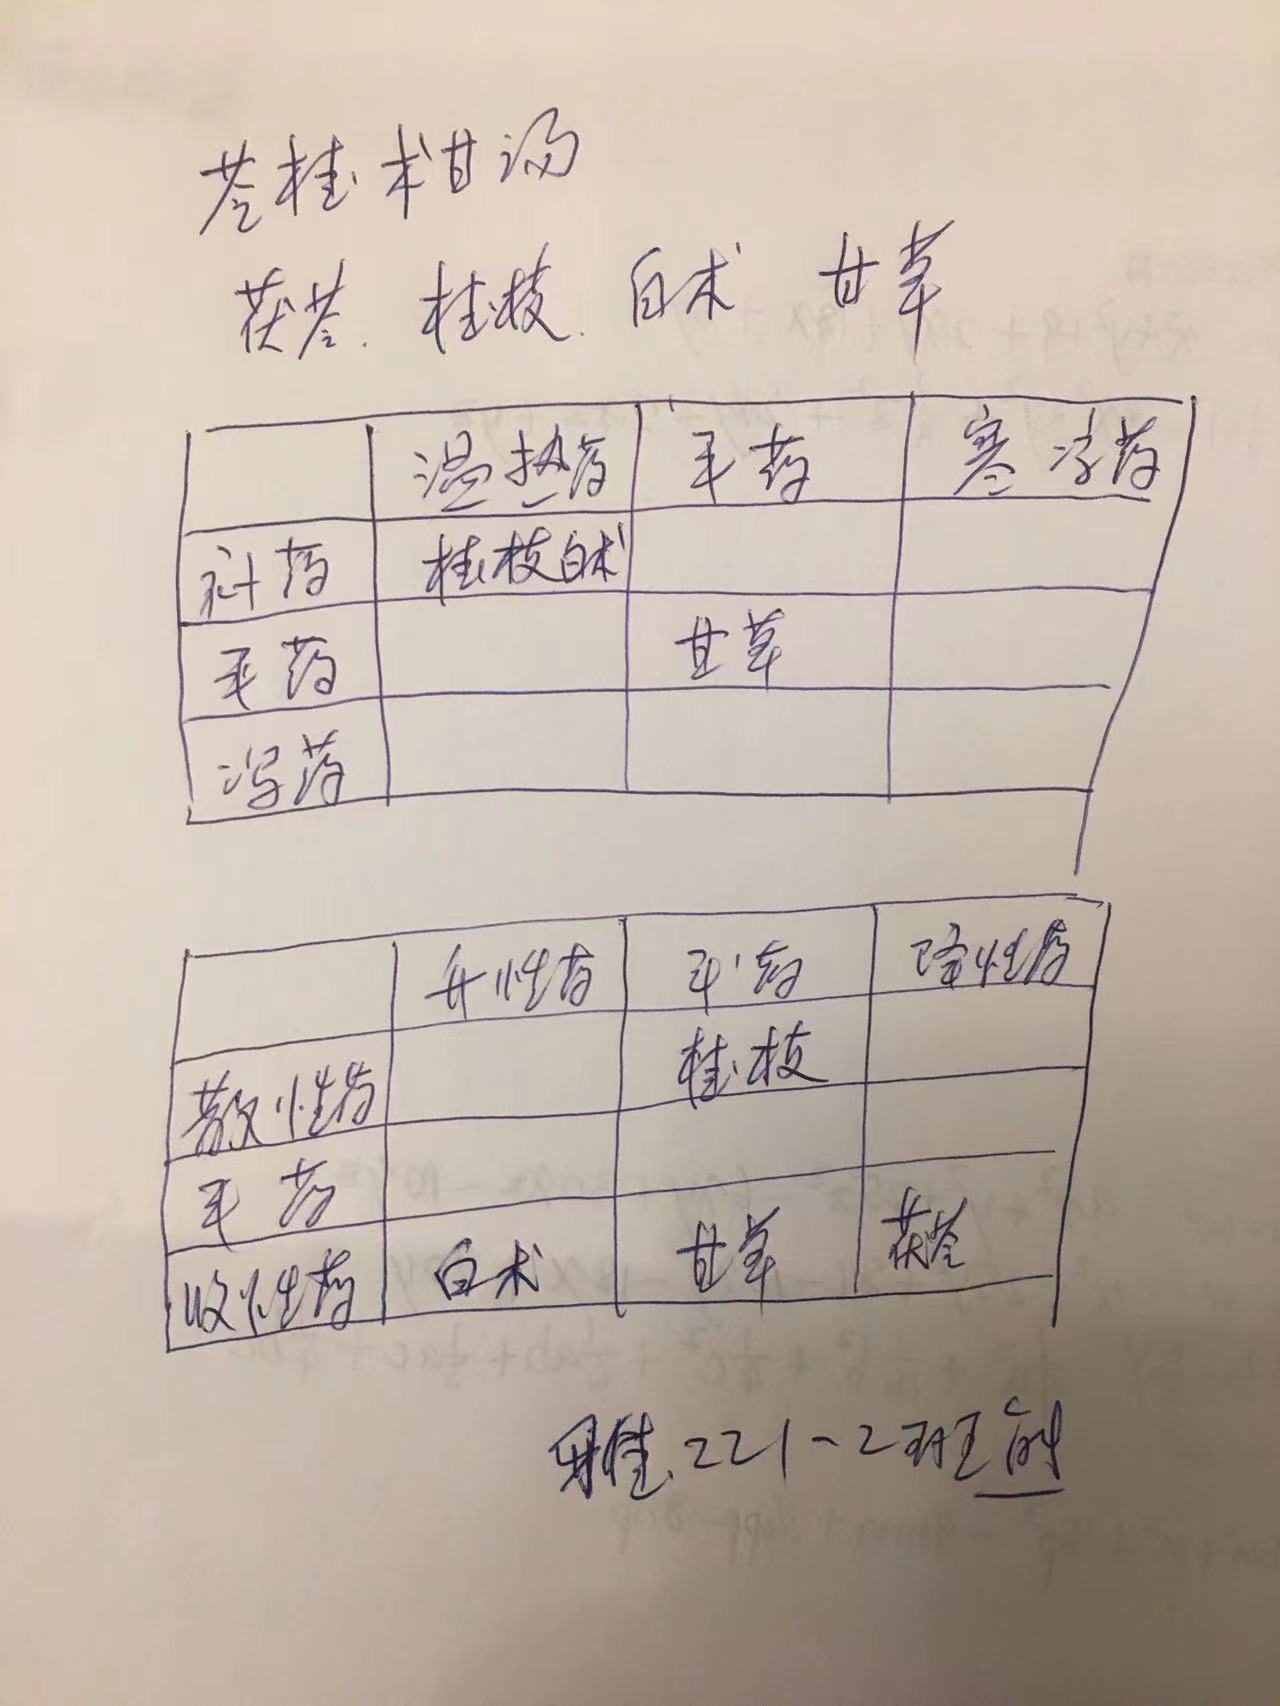 苓桂术甘汤
茯苓.桂枝.白术 甘草
温热药 平药 寒凉药
补药 桂枝白术
平药 甘草
泻药
升性药 平药 降性药
散性药 桂枝
平药
收性药 白术 甘草 茯苓
221-2班